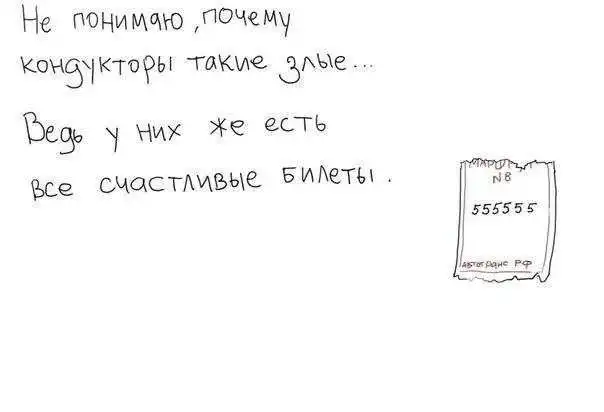 Не понимаю, почему
кондукторы такие злые...
Ведь у них же есть
все счастливые билеты.
МАРШ
N8
555555
АВТОТРАНС РФ